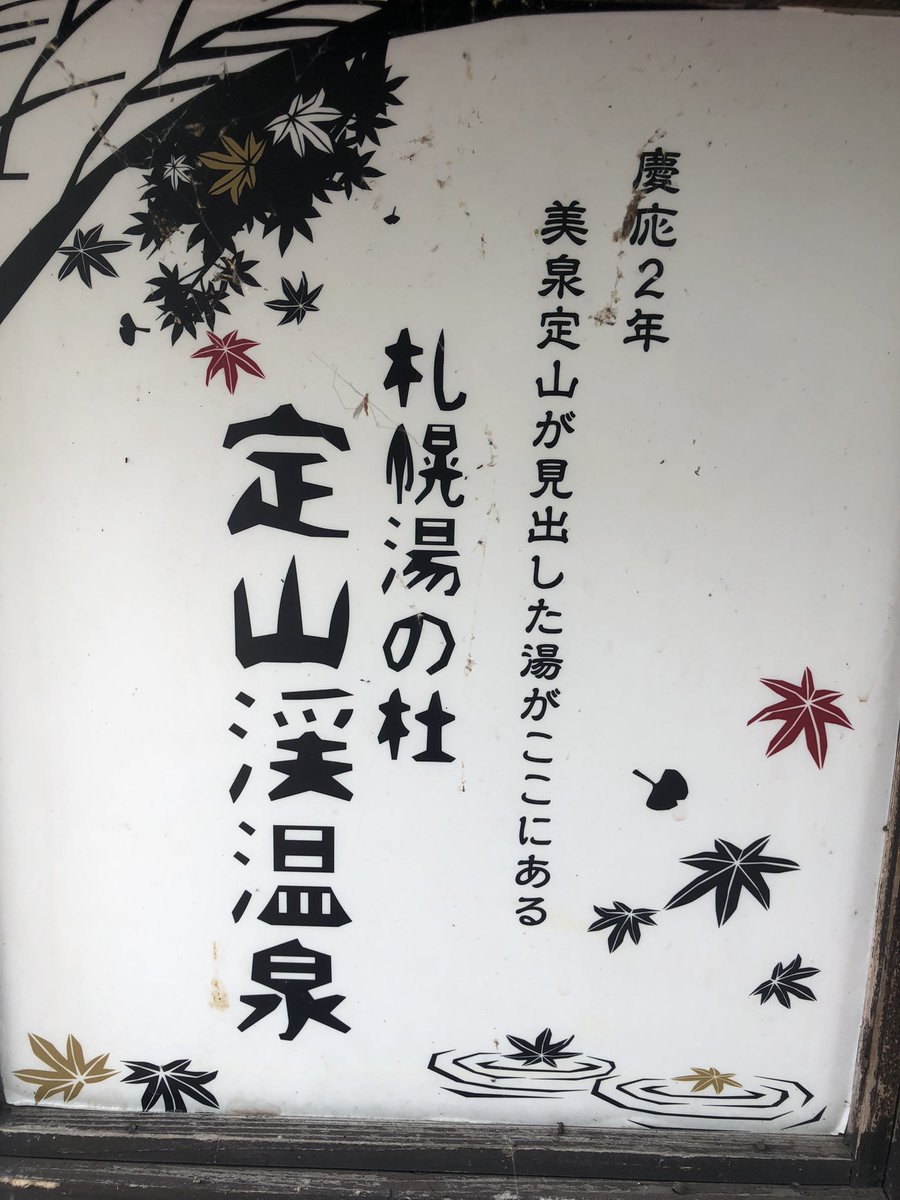 慶応2年
美泉定山が見出した湯がここにある
札幌湯の杜
定山渓温泉